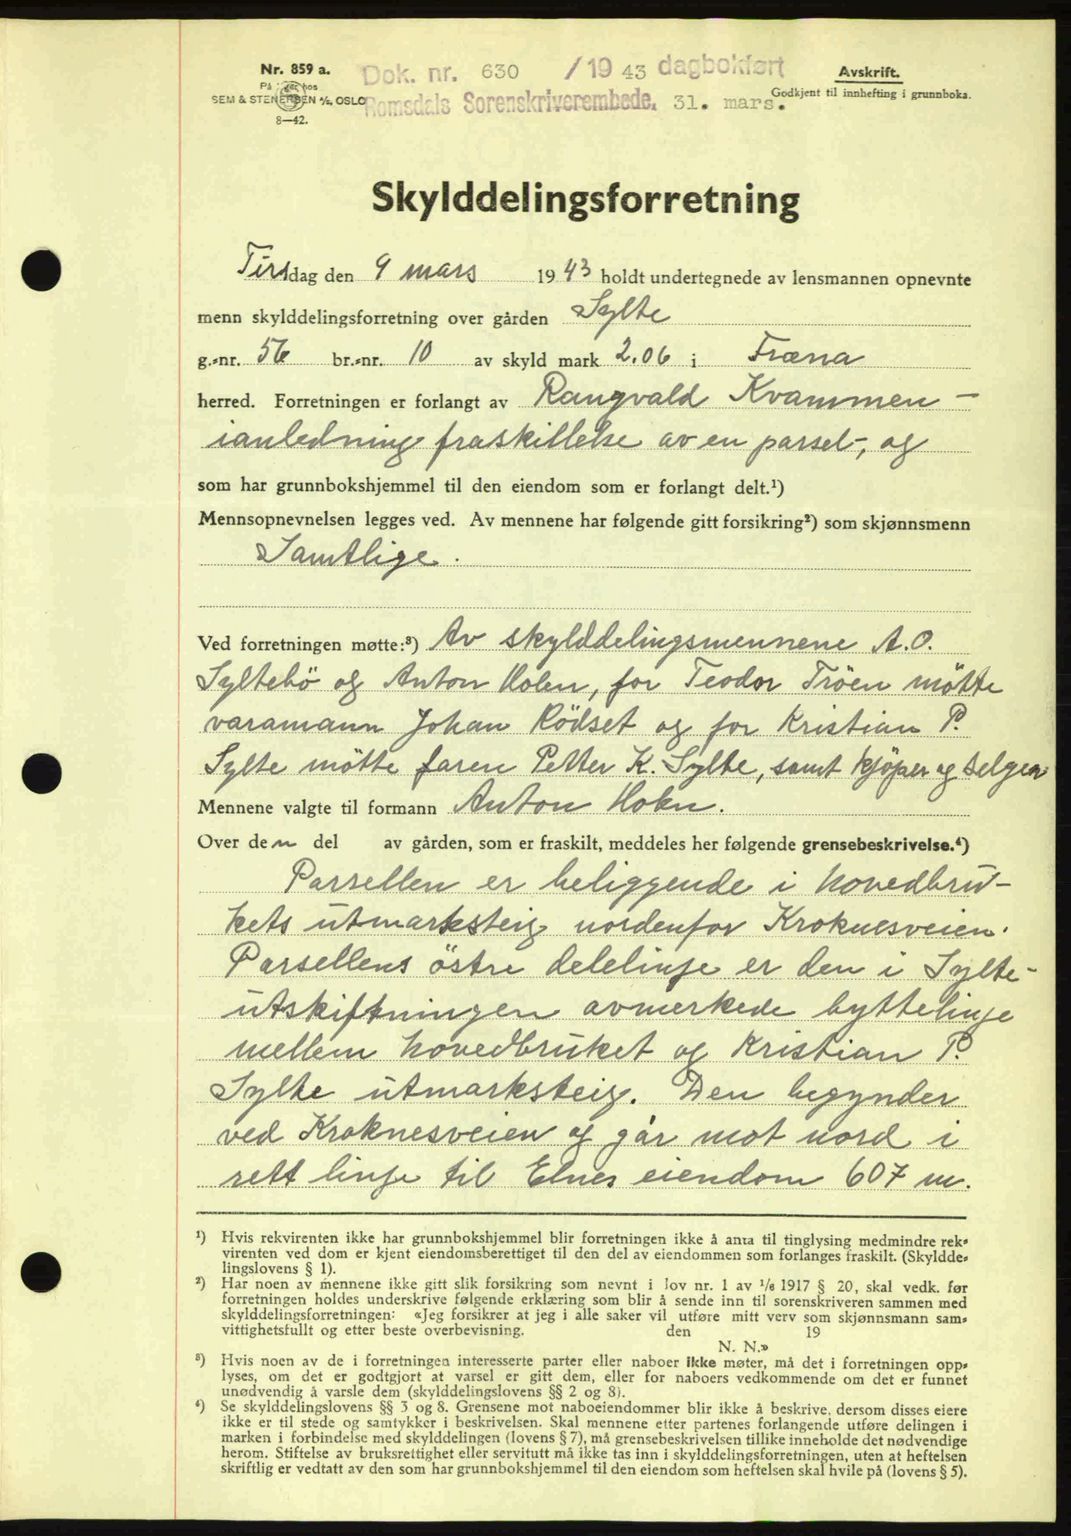 Nr. 859 a.
Dok. nr. 630 /19 43 dagbokført
Avskrift.
SEM & STENERSEN A/s, OSLO
Romsdals Sorenskriverembede. 31. mars.
Godkjent til innhefting i grunnboka.
8—42.
Skylddelingsforretning
Tirsdag den 9 mars 1943 holdt undertegnede av lensmannen opnevnte
menn skylddelingsforretning over gården Sylte
g.-nr. 56 br.-nr. 10 av skyld mark 2.06 i Fræna
herred. Forretningen er forlangt av Rangvald Kvammen -
i anledning fraskillelse av en parsel-, og
som har grunnbokshjemmel til den eiendom som er forlangt delt.¹)
Mennsopnevnelsen legges ved. Av mennene har følgende gitt forsikring²) som skjønnsmenn
Samtlige.
Ved forretningen møtte:³) Av skylddelingsmennene A.O.
Syltebö og Anton Holen, for Teodor Tröen mötte
varamann Johan Rödset og for Kristian P.
Sylte mötte faren Petter K. Sylte, samt kjöper og selger
Mennene valgte til formann Anton Holen.
Over den del av gården, som er fraskilt, meddeles her følgende grensebeskrivelse.⁴)
Parsellen er beliggende i hovedbru-
kets utmarksteig nordenfor Kroknesveien.
Parsellens östre delelinje er den i Sylte-
utskiftningen avmerkede byttelinje
mellem hovedbruket og Kristian P.
Sylte utmarksteig. Den begynder
ved Kroknesveien og går mot nord i
rett linje til Elnes eiendom 607 m.
¹) Hvis rekvirenten ikke har grunnbokshjemmel blir forretningen ikke å anta til tinglysing medmindre rek-
virenten ved dom er kjent eiendomsberettiget til den del av eiendommen som forlanges fraskilt. (Skyldde-
lingslovens § 1).
²) Har noen av mennene ikke gitt slik forsikring som nevnt i lov nr. 1 av ¹/₆ 1917 § 20, skal vedk. før
forretningen holdes underskrive følgende erklæring som blir å sende inn til sorenskriveren sammen med
skylddelingsforretningen: «Jeg forsikrer at jeg i alle saker vil utføre mitt verv som skjønnsmann sam-
vittighetsfullt og etter beste overbevisning. den 19
N. N.»
³) Hvis noen av de i forretningen interesserte parter eller naboer ikke møter, må det i forretningen opp-
lyses, om det er godtgjort at varsel er gitt dem, eller for naboers vedkommende om det er funnet
unødvendig å varsle dem (skylddelingslovens §§ 2 og 8).
⁴) Se skylddelingslovens §§ 3 og 8. Grensene mot naboeiendommer blir ikke å beskrive, dersom disses eiere
ikke er til stede og samtykker i beskrivelsen. Skal mennene etter partenes forlangende utføre delingen i
marken i forbindelse med skylddelingen (lovens § 7), må grensebeskrivelsen tillike inneholde det nødvendige
herom. Stiftelse av bruksrettighet eller servitutt må ikke tas inn i skylddelingsforretningen, uten at heftelsen
skriftlig er vedtatt av den som har grunnbokshjemmel til den eiendom som heftelsen skal hvile på (lovens § 5).